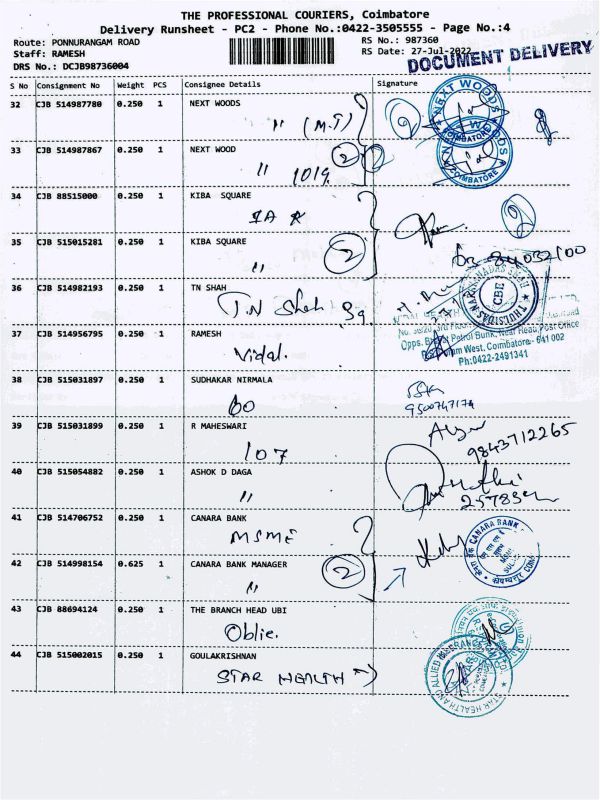 THE PROFESSIONAL COURIERS, Coimbatore
Delivery Runsheet - PC2 - Phone No.:0422-3505555 - Page No.:4
Route: PONNURANGAM ROAD
RS No.: 987360
Staff: RAMESH
RS Date: 27-Jul-2022
DRS No.: DCJB98736004
DOCUMENT DELIVERY
S No Consignment No Weight PCS Consignee Details Signature
32 CJB 514987780 0.250 1 NEXT WOODS
" (M.T)
33 CJB 514987867 0.250 1 NEXT WOOD
" 1019
2
NEXT WOODS
COIMBATORE
34 CJB 88515000 0.250 1 KIBA SQUARE
35 CJB 515015281 0.250 1 KIBA SQUARE
"
2
36 CJB 514982193 0.250 1 TN SHAH
T.N Shah
CBE
37 CJB 514956795 0.250 1 RAMESH
Vidal.
Opps. Bharat Petrol Bunk, Near Head Post Office
West. Coimbatore- 641 002
Ph:0422-2491341
38 CJB 515031897 0.250 1 SUDHAKAR NIRMALA
60
9500747174
39 CJB 515031899 0.250 1 R MAHESWARI
107
9843712265
40 CJB 515054882 0.250 1 ASHOK D DAGA
"
41 CJB 514706752 0.250 1 CANARA BANK
MSME
CANARA BANK
42 CJB 514998154 0.625 1 CANARA BANK MANAGER
"
2
43 CJB 88694124 0.250 1 THE BRANCH HEAD UBI
Oblie.
44 CJB 515002015 0.250 1 GOULAKRISHNAN
STAR HEALTH
STAR HEALTH AND ALLIED INSURANCE CO.